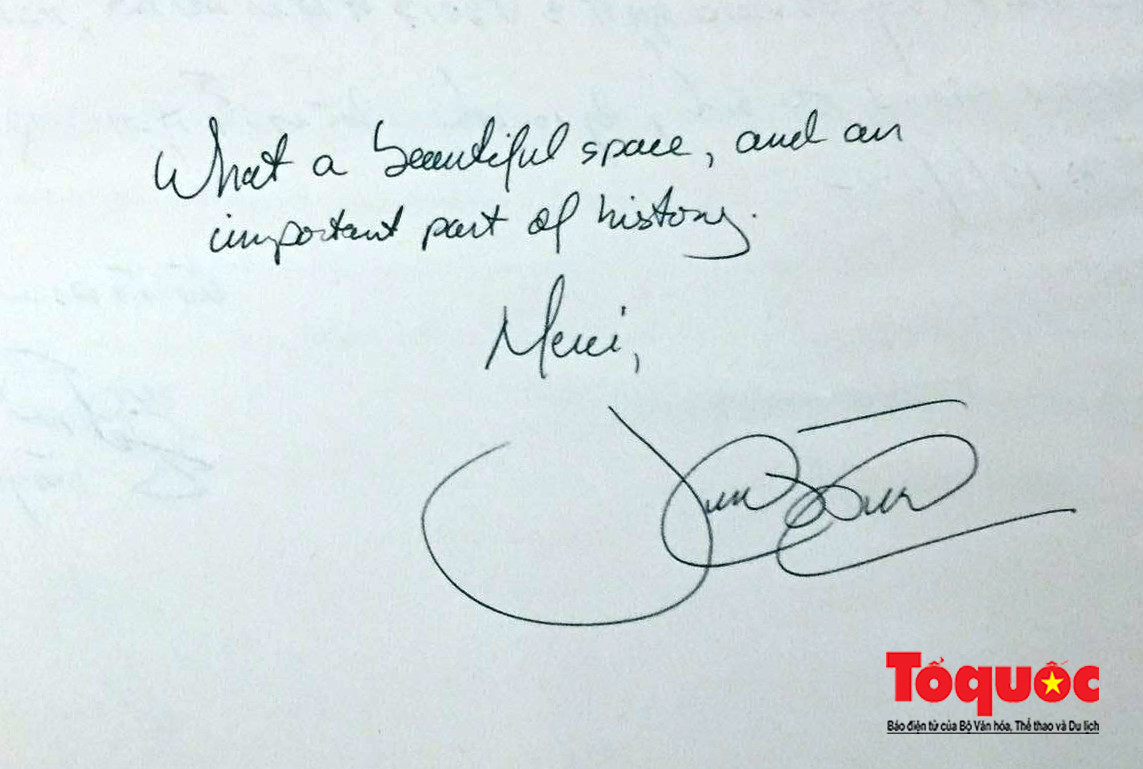 What a beautiful space, and an
important part of history.
Merci,
Tổquốc
Báo điện tử của Bộ Văn hóa, Thể thao và Du lịch